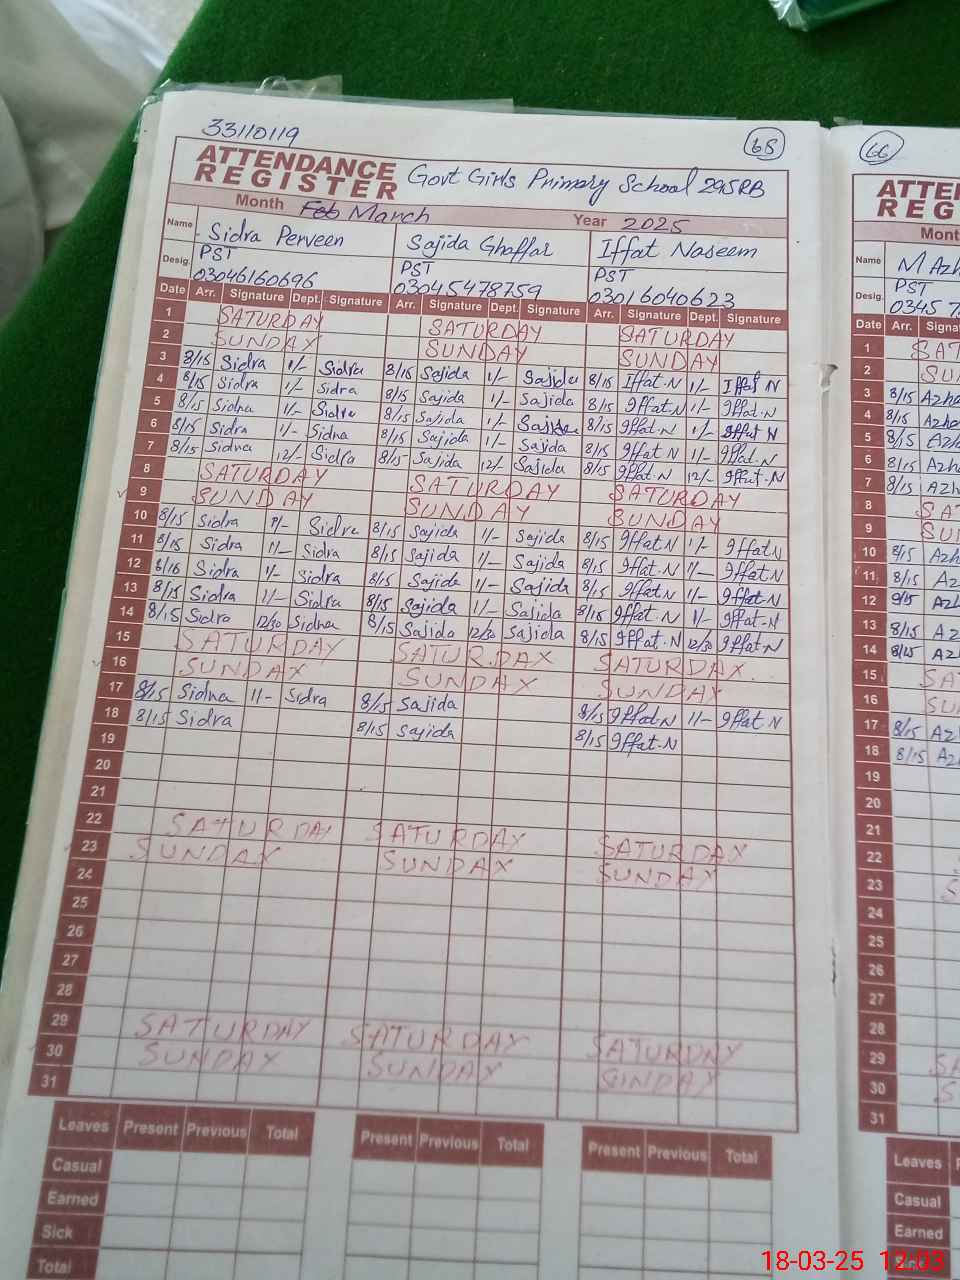 33110119
68
ATTENDANCE REGISTER Govt Girls Primary School 295RB
Month Feb March Year 2025
Name Sidra Perveen Sajida Ghaffar Iffat Naseem
Desig. PST PST PST
03046160696 03045478759 03016040623
Date Arr. Signature Dept. Signature Arr. Signature Dept. Signature Arr. Signature Dept. Signature
1 SATURDAY SATURDAY SATURDAY
2 SUNDAY SUNDAY SUNDAY
3 8/15 Sidra 1/- Sidra 8/15 Sajida 1/- Sajida 8/15 Iffat-N 1/- Iffat N
4 8/15 Sidra 1/- Sidra 8/15 Sajida 1/- Sajida 8/15 Iffat-N 1/- Iffat-N
5 8/15 Sidra 1/- Sidra 8/15 Sajida 1/- Sajida 8/15 Iffat-N 1/- Iffat N
6 8/15 Sidra 1/- Sidra 8/15 Sajida 1/- Sajida 8/15 Iffat-N 1/- Iffat-N
7 8/15 Sidra 12/- Sidra 8/15 Sajida 12/- Sajida 8/15 Iffat-N 12/- Iffat-N
8 SATURDAY SATURDAY SATURDAY
9 SUNDAY SUNDAY SUNDAY
10 8/15 Sidra 1/- Sidra 8/15 Sajida 1/- Sajida 8/15 Iffat N 1/- Iffat N
11 8/15 Sidra 1/- Sidra 8/15 Sajida 1/- Sajida 8/15 Iffat-N 1/- Iffat N
12 8/15 Sidra 1/- Sidra 8/15 Sajida 1/- Sajida 8/15 Iffat-N 1/- Iffat-N
13 8/15 Sidra 1/- Sidra 8/15 Sajida 1/- Sajida 8/15 Iffat-N 1/- Iffat-N
14 8/15 Sidra 12/30 Sidra 8/15 Sajida 12/30 Sajida 8/15 Iffat-N 12/30 Iffat-N
15 SATURDAY SATURDAY SATURDAY
16 SUNDAY SUNDAY SUNDAY
17 8/15 Sidra 1/- Sidra 8/15 Sajida 8/15 Iffat-N 1/- Iffat-N
18 8/15 Sidra 8/15 Sajida 8/15 Iffat-N
19
20
21
22 SATURDAY SATURDAY SATURDAY
23 SUNDAY SUNDAY SUNDAY
24
25
26
27
28
29 SATURDAY SATURDAY SATURDAY
30 SUNDAY SUNDAY SUNDAY
31
Leaves Present Previous Total Present Previous Total Present Previous Total
Casual
Earned
Sick
Total
66
ATTE
REG
Mont
Name M Azh
Desig. PST
0345 7
Date Arr. Signa
1 SAT
2 SU
3 8/15 Azh
4 8/15 Azh
5 8/15 Azh
6 8/15 Azh
7 8/15 Azh
8 SA
9 SU
10 8/15 Azh
11 8/15 Az
12 8/15 Azh
13 8/15 Az
14 8/15 Az
15 SA
16 SU
17 8/15 Az
18 8/15 Az
19
20
21
22
23 S
24
25
26
27
28
29 SA
30 S
31
Leaves P
Casual
Earned
18-03-25 12:03